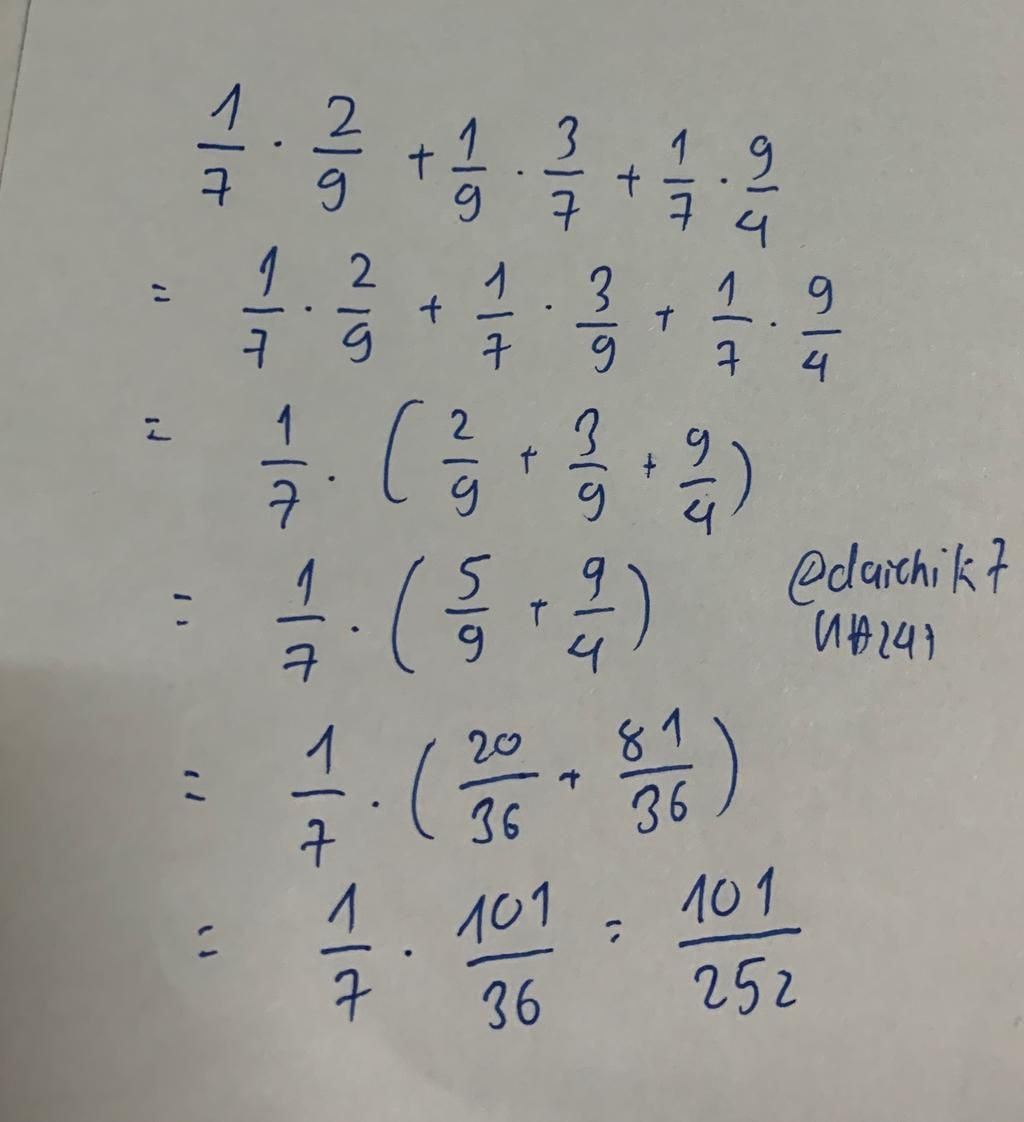 1/7 · 2/9 + 1/9 · 3/7 + 1/7 · 9/4
= 1/7 · 2/9 + 1/7 · 3/9 + 1/7 · 9/4
= 1/7 · ( 2/9 + 3/9 + 9/4 )
= 1/7 · ( 5/9 + 9/4 )
@daichik7
= 1/7 · ( 20/36 + 81/36 )
= 1/7 · 101/36 = 101/252